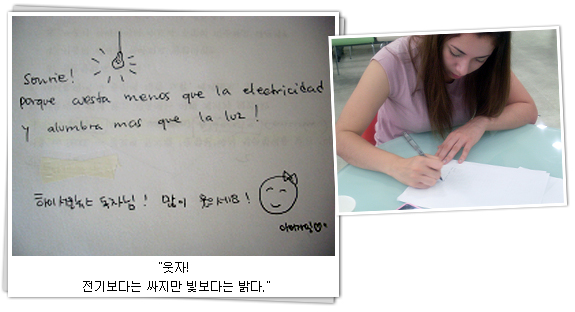 Sonríe!
porque cuesta menos que la electricidad
y alumbra mas que la luz!
하이서울뉴스 독자님! 많이 웃으세요!
"웃자!
전기보다는 싸지만 빛보다는 밝다."